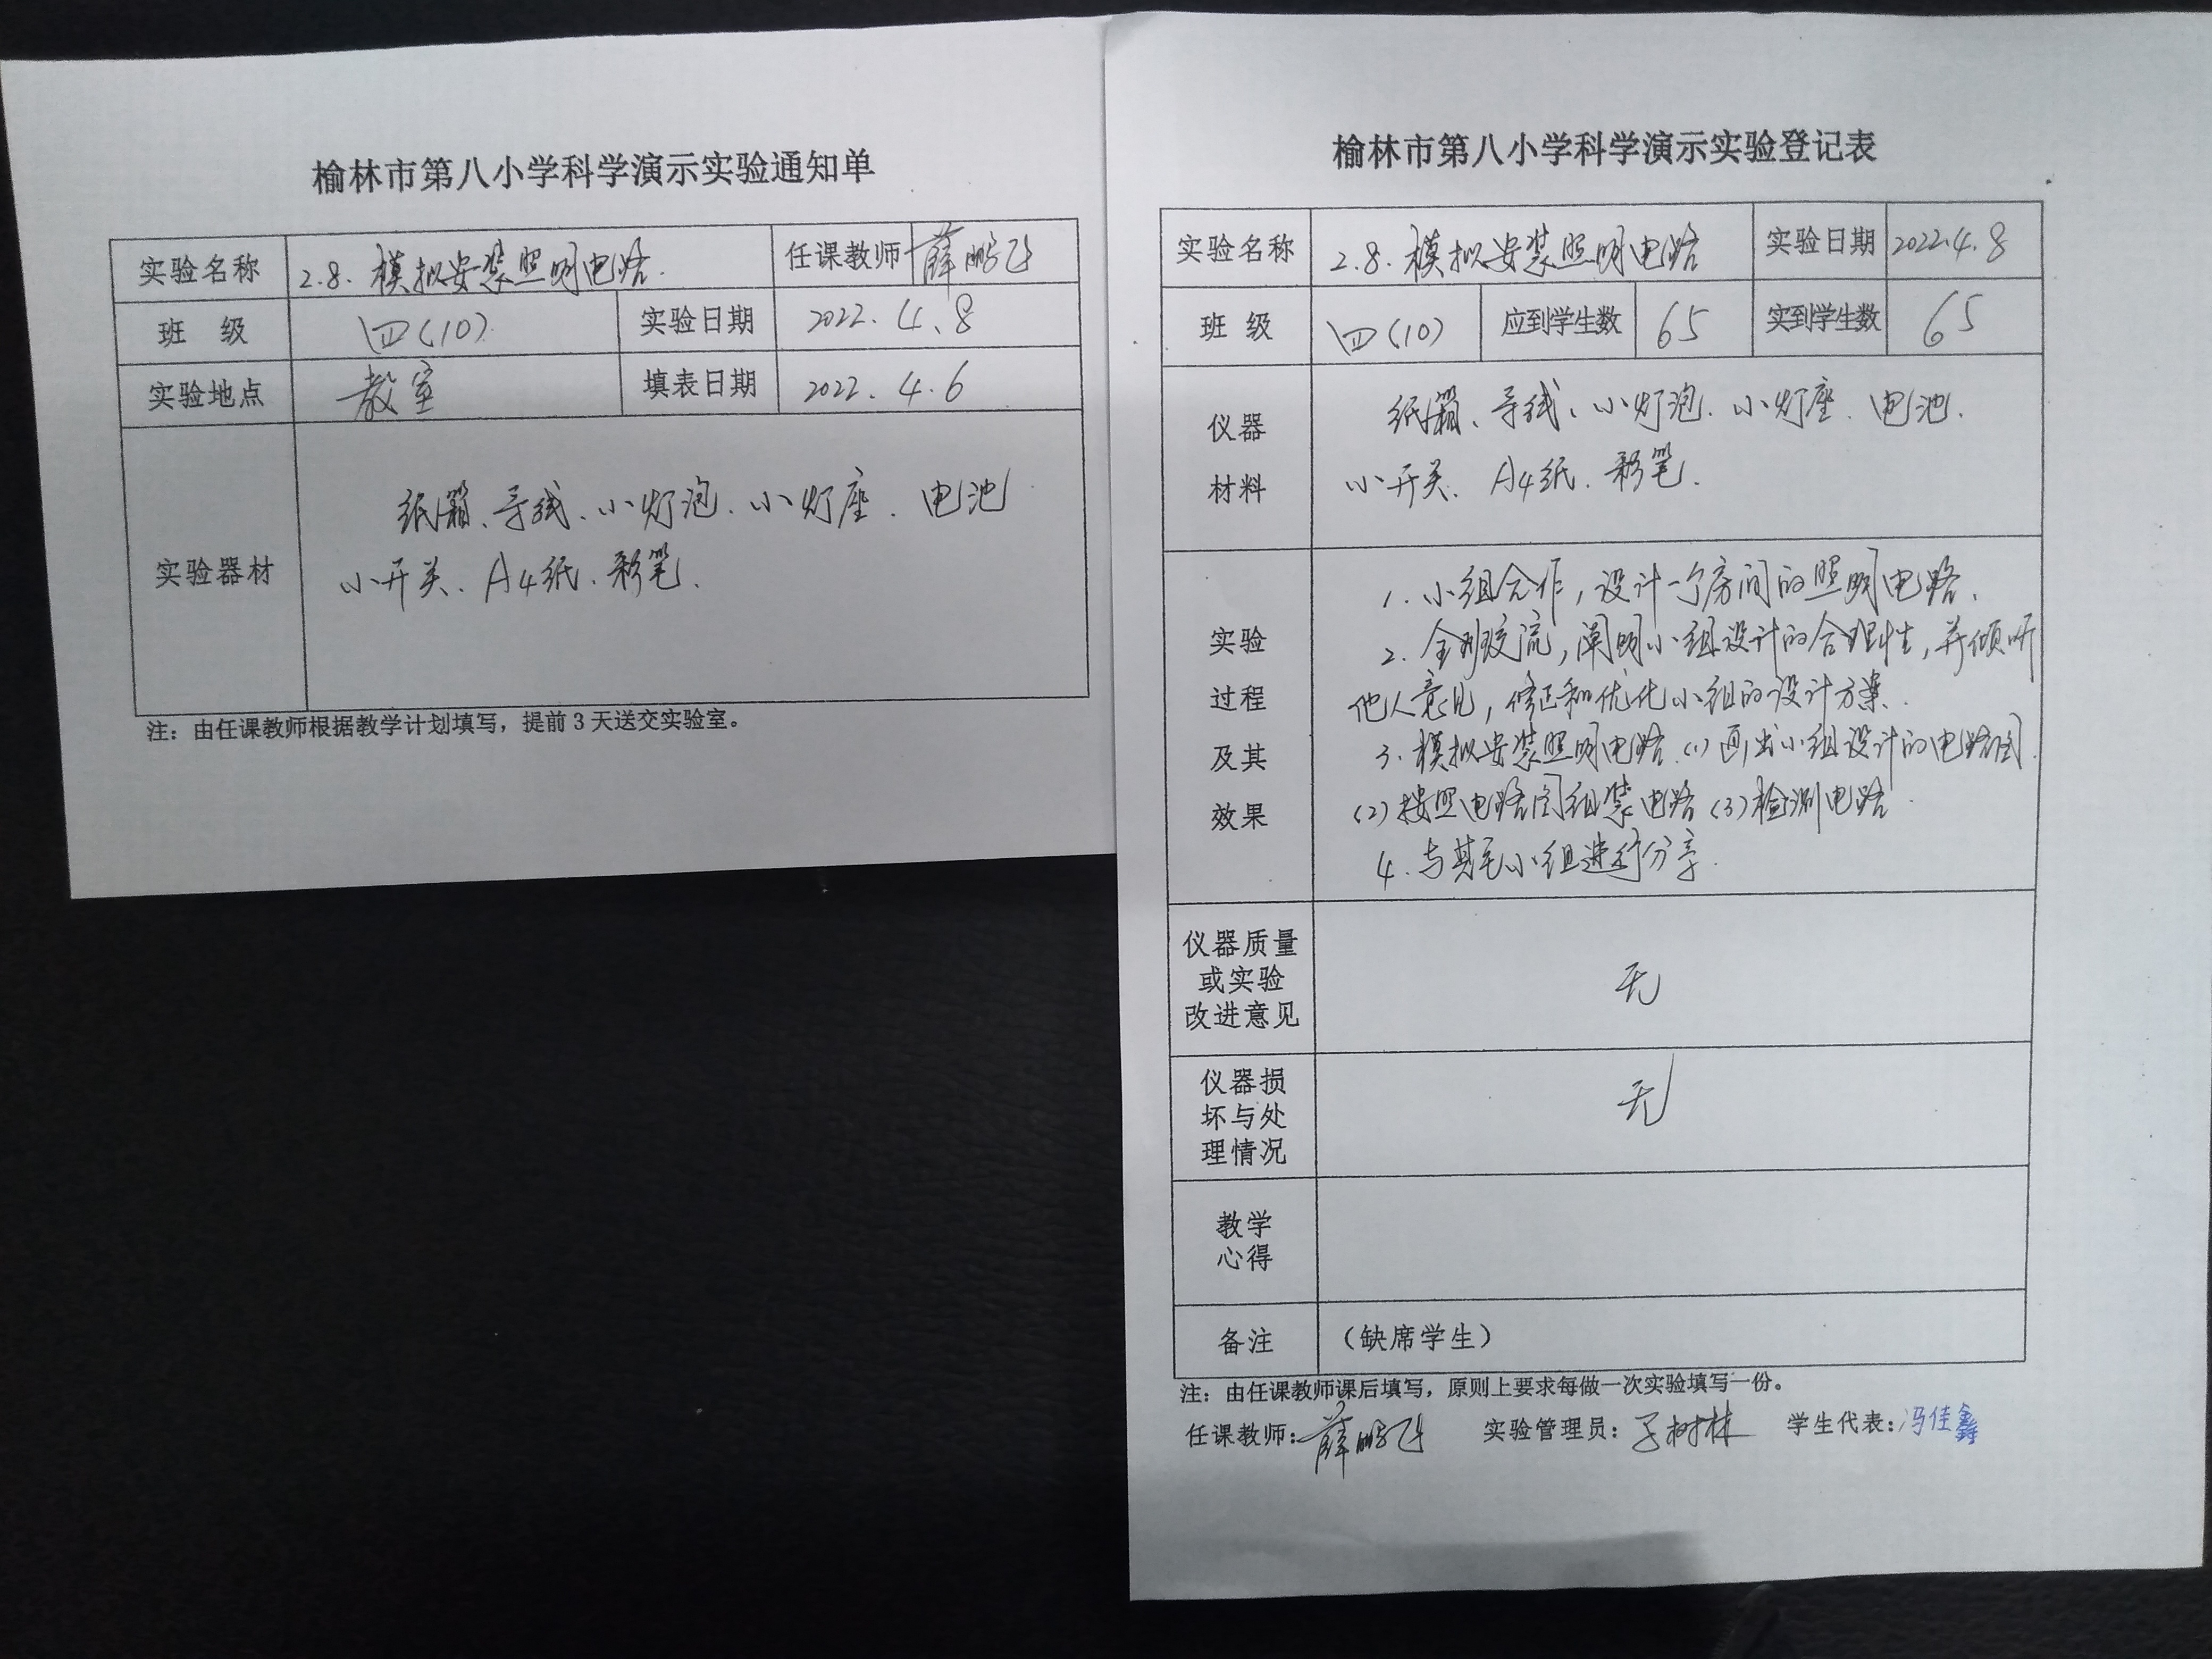 榆林市第八小学科学演示实验通知单
实验名称 2.8.模拟安装照明电路. 任课教师 薛鹏飞
班 级 四(10) 实验日期 2022.4.8
实验地点 教室 填表日期 2022.4.6
实验器材
纸箱、导线、小灯泡.小灯座.电池
小开关、A4纸.彩笔.
注：由任课教师根据教学计划填写，提前3天送交实验室。
榆林市第八小学科学演示实验登记表
实验名称 2.8.模拟安装照明电路 实验日期 2022.4.8
班 级 四(10) 应到学生数 65 实到学生数 65
仪器
材料
纸箱、导线、小灯泡.小灯座.电池.
小开关.A4纸.彩笔.
实验
过程
及其
效果
1.小组合作，设计一个房间的照明电路.
2.全班交流，阐明小组设计的合理性，并倾听
他人意见，修正和优化小组的设计方案.
3.模拟安装照明电路.(1)画出小组设计的电路图.
(2)按照电路图组装电路(3)检测电路.
4.与其它小组进行分享.
仪器质量
或实验
改进意见
无
仪器损
坏与处
理情况
无
教学
心得
备注 （缺席学生）
注：由任课教师课后填写，原则上要求每做一次实验填写一份。
任课教师：薛鹏飞 实验管理员： 树林 学生代表：冯佳鑫